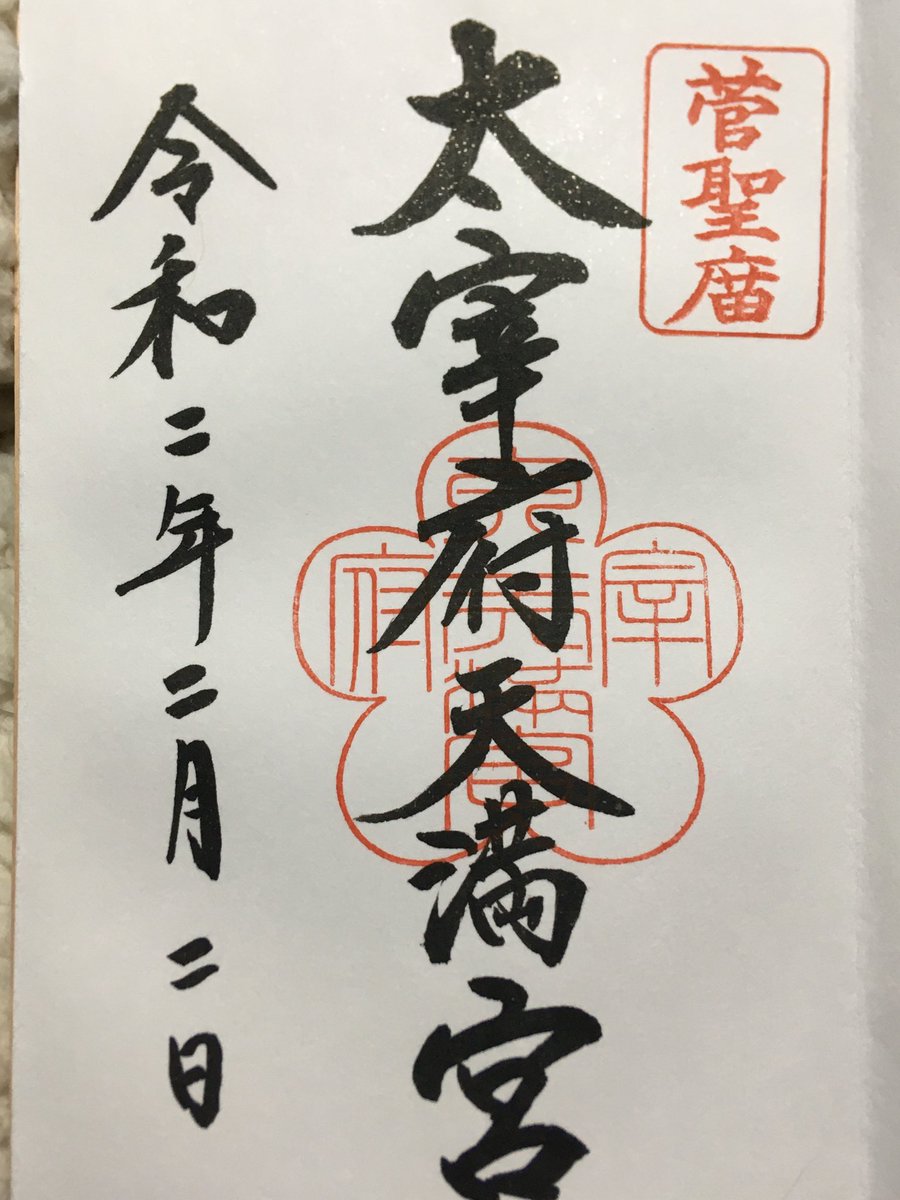 菅聖庿
太宰府天満宮
令和二年二月二日